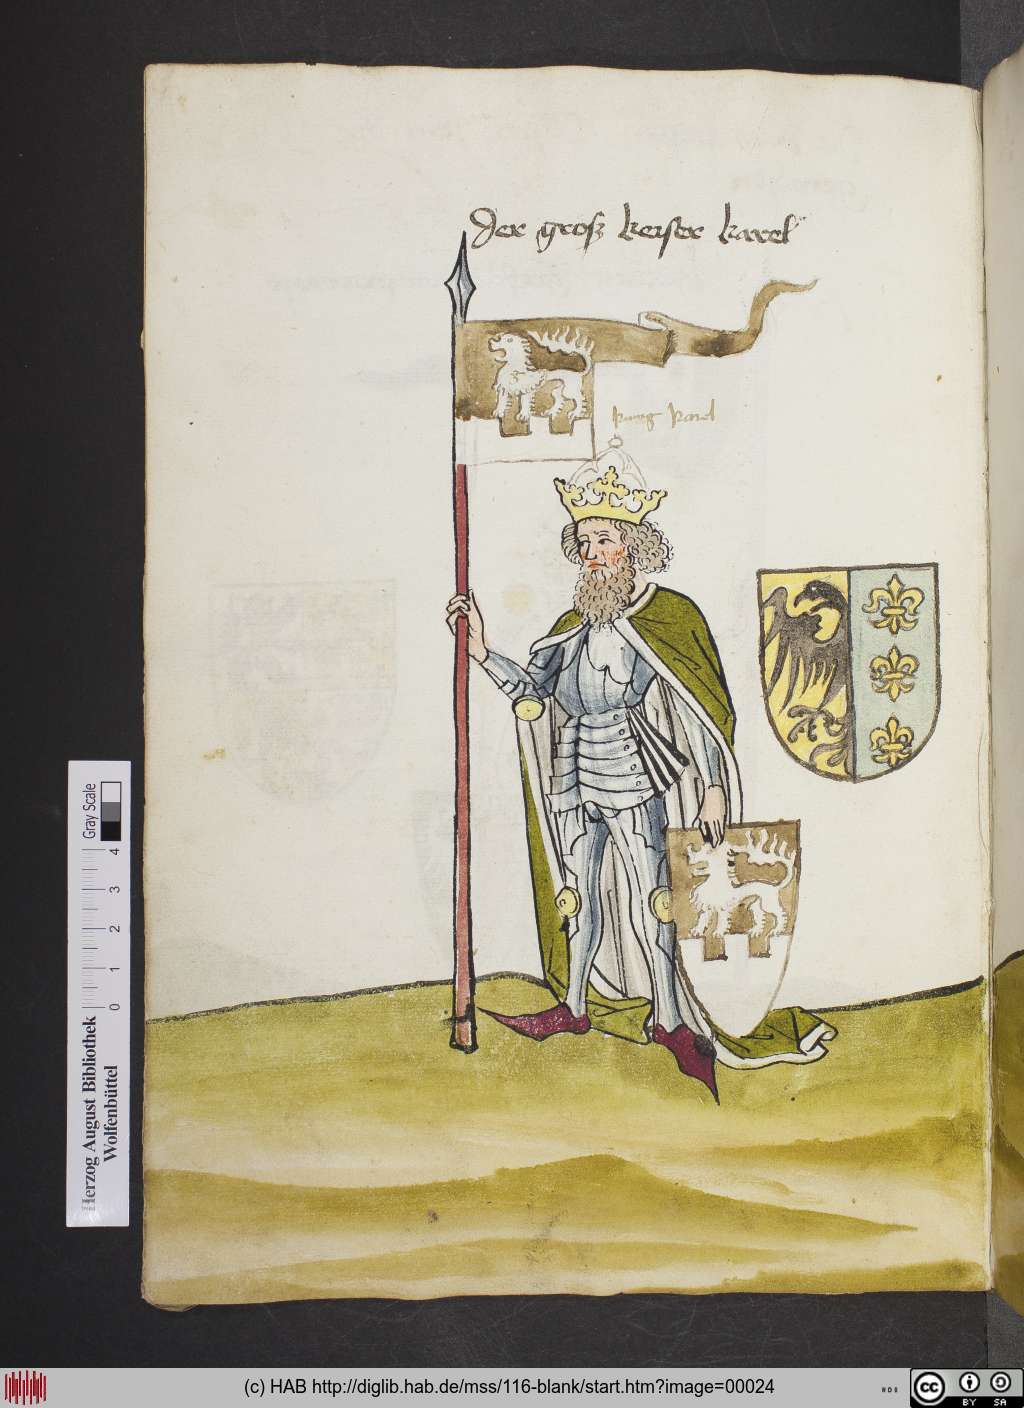 der groß keiser karel
kung karel
Gray Scale
0 1 2 3 4
Herzog August Bibliothek
Wolfenbüttel
(c) HAB http://diglib.hab.de/mss/116-blank/start.htm?image=00024
cc
BY SA